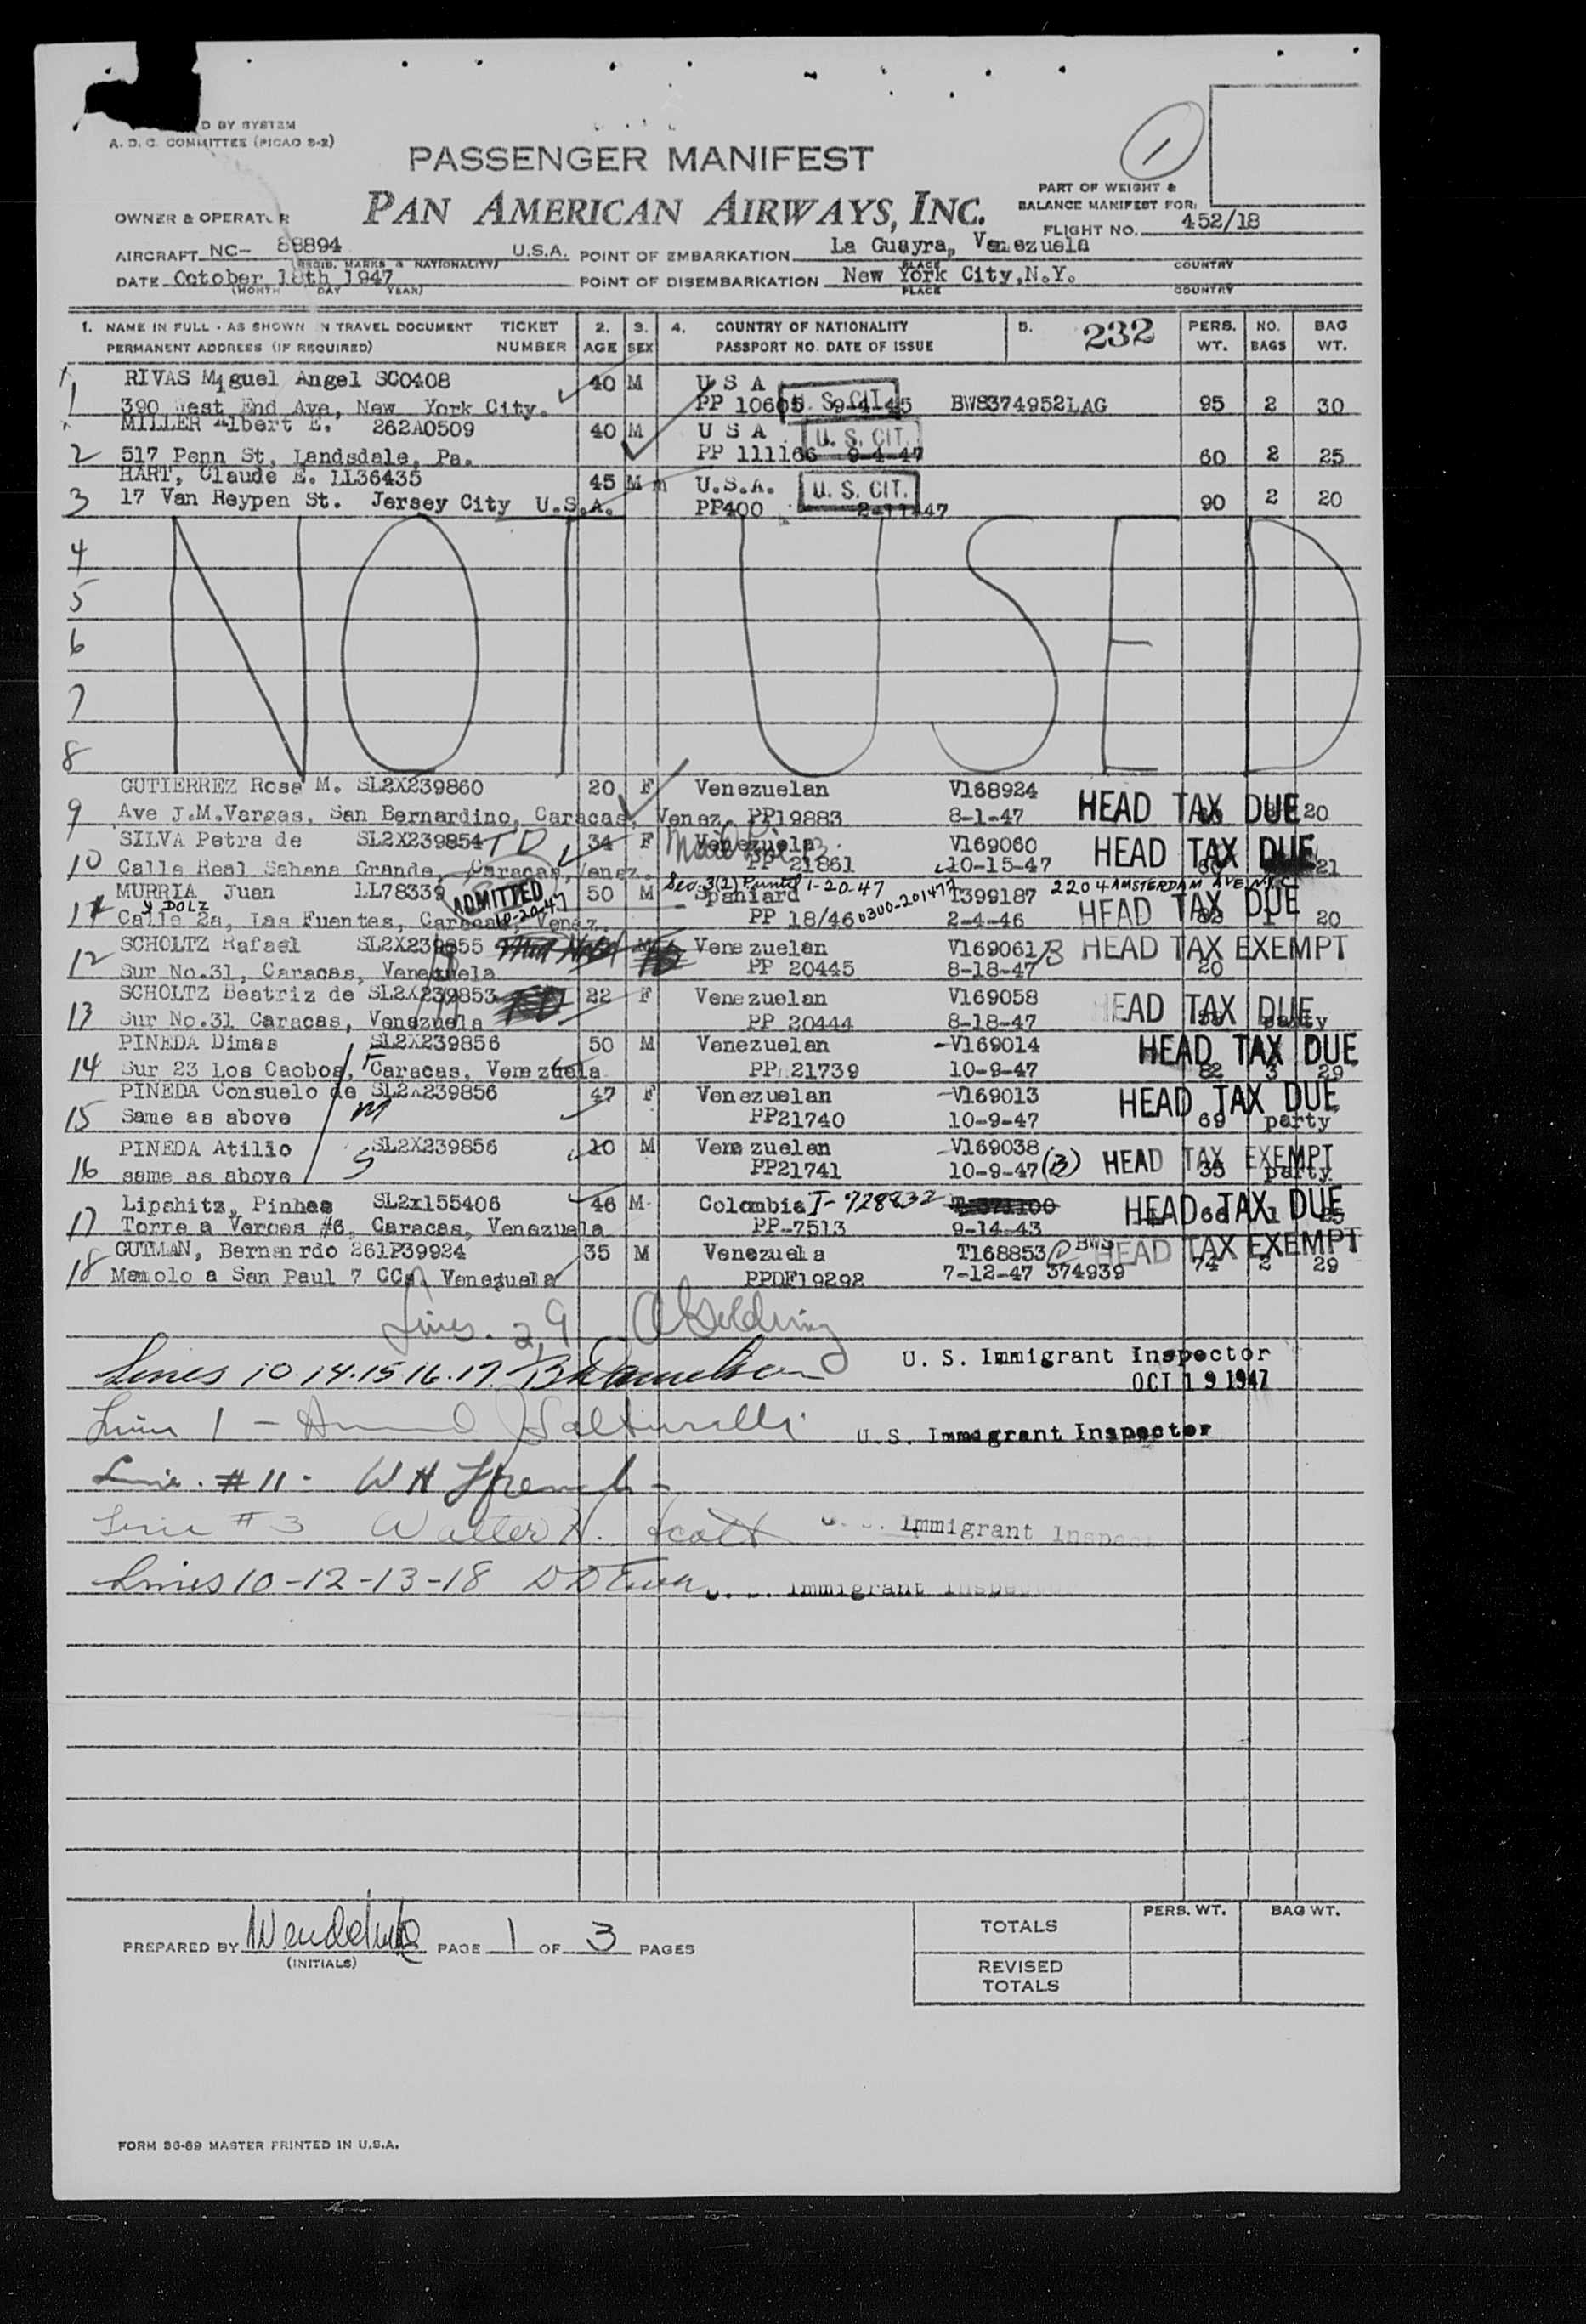 D BY SYSTEM
A. D. C. COMMITTEE (PICAO S-2)
1
PASSENGER MANIFEST
PAN AMERICAN AIRWAYS, INC.
PART OF WEIGHT &
BALANCE MANIFEST FOR:
FLIGHT NO. 452/18
OWNER & OPERATOR
AIRCRAFT NC- 88894 U.S.A. POINT OF EMBARKATION La Guayra, Venezuela
(REGIS. MARKS & NATIONALITY) PLACE COUNTRY
DATE October 18th 1947 POINT OF DISEMBARKATION New York City,N.Y.
(MONTH DAY YEAR) PLACE COUNTRY
1. NAME IN FULL - AS SHOWN IN TRAVEL DOCUMENT TICKET 2. 3. 4. COUNTRY OF NATIONALITY 5. 232 PERS. NO. BAG
PERMANENT ADDRESS (IF REQUIRED) NUMBER AGE SEX PASSPORT NO. DATE OF ISSUE WT. BAGS WT.
RIVAS Miguel Angel SC0408 40 M U S A
1 390 West End Ave, New York City. PP 10605 U. S. CIT. 9-14-45 BWS374952LAG 95 2 30
MILLER Albert E. 262A0509 40 M U S A U. S. CIT.
2 517 Penn St, Landsdale, Pa. PP 111166 9-4-47 60 2 25
HART, Claude E. LL36435 45 M m U.S.A. U. S. CIT.
3 17 Van Reypen St. Jersey City U.S.A. PP400 2-11-47 90 2 20
4
5
6
7
8
NOT USED
GUTIERREZ Rosa M. SL2X239860 20 F Venezuelan V168924
9 Ave J.M.Vargas, San Bernardino, Caracas, Venez. PP19883 8-1-47 HEAD TAX DUE 20
SILVA Petra de SL2X239854 TD 34 F Venezuela V169060
10 Calle Real Sabana Grande, Caracas,Venez. PP 21861 10-15-47 HEAD TAX DUE 21
MURRIA Juan LL78339 ADMITTED 50 M Sec. 3(2) 1-20-47 Spaniard T399187 2204 AMSTERDAM AVE N.Y.C.
y DOLZ 10-20-47
11 Calle 2a, Las Fuentes, Caracas, Venez. PP 18/46 0300-201477 2-4-46 HEAD TAX DUE 1 20
SCHOLTZ Rafael SL2X239855 M Venezuelan V169061 B HEAD TAX EXEMPT
12 Sur No.31, Caracas, Venezuela PP 20445 8-18-47 20
SCHOLTZ Beatriz de SL2X239853 22 F Venezuelan V169058
13 Sur No.31 Caracas, Venezuela PP 20444 8-18-47 HEAD TAX DUE party
PINEDA Dimas SL2X239856 50 M Venezuelan V169014
14 Sur 23 Los Caobos, F Caracas, Venezuela PP 21739 10-9-47 HEAD TAX DUE 82 3 29
PINEDA Consuelo de SL2X239856 47 F Venezuelan V169013
15 Same as above M PP21740 10-9-47 HEAD TAX DUE 69 party
PINEDA Atilio SL2X239856 10 M Venezuelan V169038
16 same as above S PP21741 10-9-47 (B) HEAD TAX EXEMPT 35 party
Lipshitz, Pinhas SL2x155406 46 M Colombia I-928832
17 Torre a Verges #6, Caracas, Venezuela PP-7513 9-14-43 HEAD TAX DUE 66 1 25
GUTMAN, Bernardo 261P39924 35 M Venezuela T168853 BWS HEAD TAX EXEMPT
18 Mamolo a San Paul 7 CCs Venezuela PPDF19292 7-12-47 374939 74 2 29
Lines. 2,9 Golding
Lines 10.14.15.16.17. U. S. Immigrant Inspector
OCT 19 1947
Line 1 - U.S. Immigrant Inspector
Line. #11- W H French
Line #3 Walter H. Scott Immigrant Inspec
Lines 10-12-13-18 Immigrant Inspec
PREPARED BY PAGE 1 OF 3 PAGES
(INITIALS)
PERS. WT. BAG WT.
TOTALS
REVISED
TOTALS
FORM 36-69 MASTER PRINTED IN U.S.A.